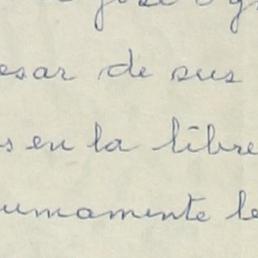 esar de sus
s en la libre
umamente le